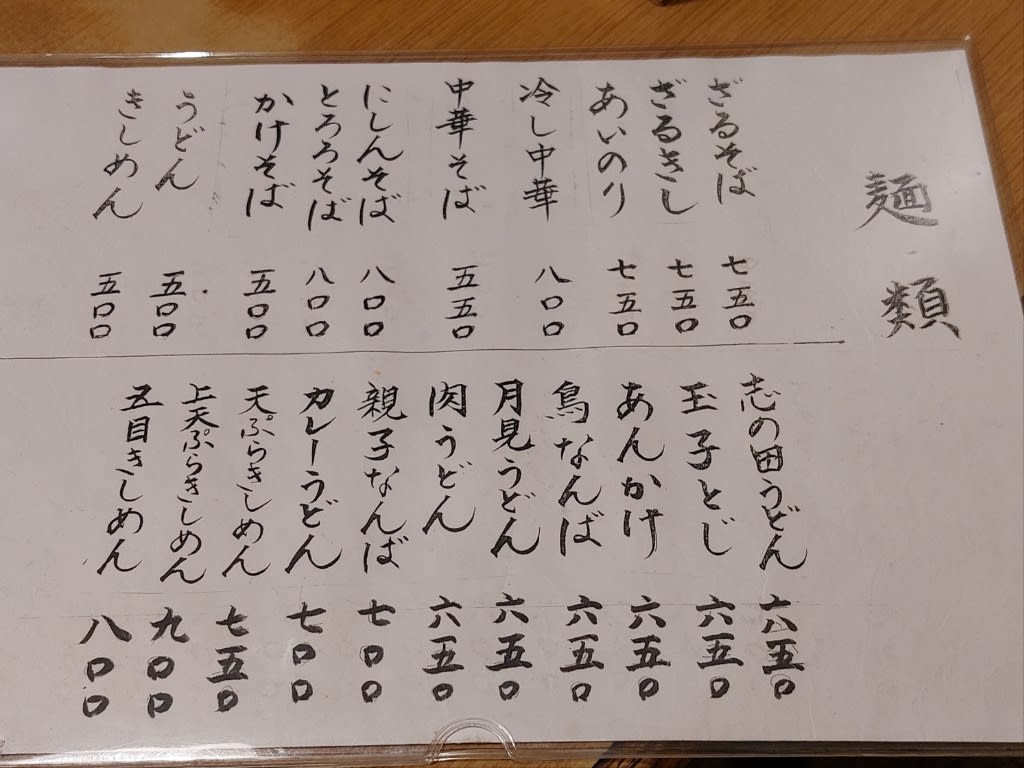 麺類
ざるそば 七五〇
ざるきし 七五〇
あいのり 七五〇
冷し中華 八〇〇
中華そば 五五〇
にしんそば 八〇〇
とろろそば 八〇〇
かけそば 五〇〇
うどん 五〇〇
きしめん 五〇〇
志の田うどん 六五〇
玉子とじ 六五〇
あんかけ 六五〇
鳥なんば 六五〇
月見うどん 六五〇
肉うどん 六五〇
親子なんば 七〇〇
カレーうどん 七〇〇
天ぷらきしめん 七五〇
上天ぷらきしめん 九〇〇
五目きしめん 八〇〇